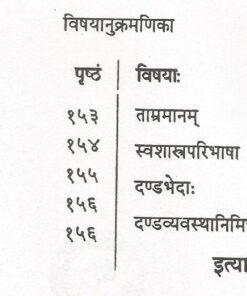 विषयानुक्रमणिका
पृष्ठं विषयाः
१५३ ताम्रमानम्
१५४ स्वशास्त्रपरिभाषा
१५५ दण्डभेदाः
१५६
१५६ दण्डव्यवस्थानिमि
इत्या